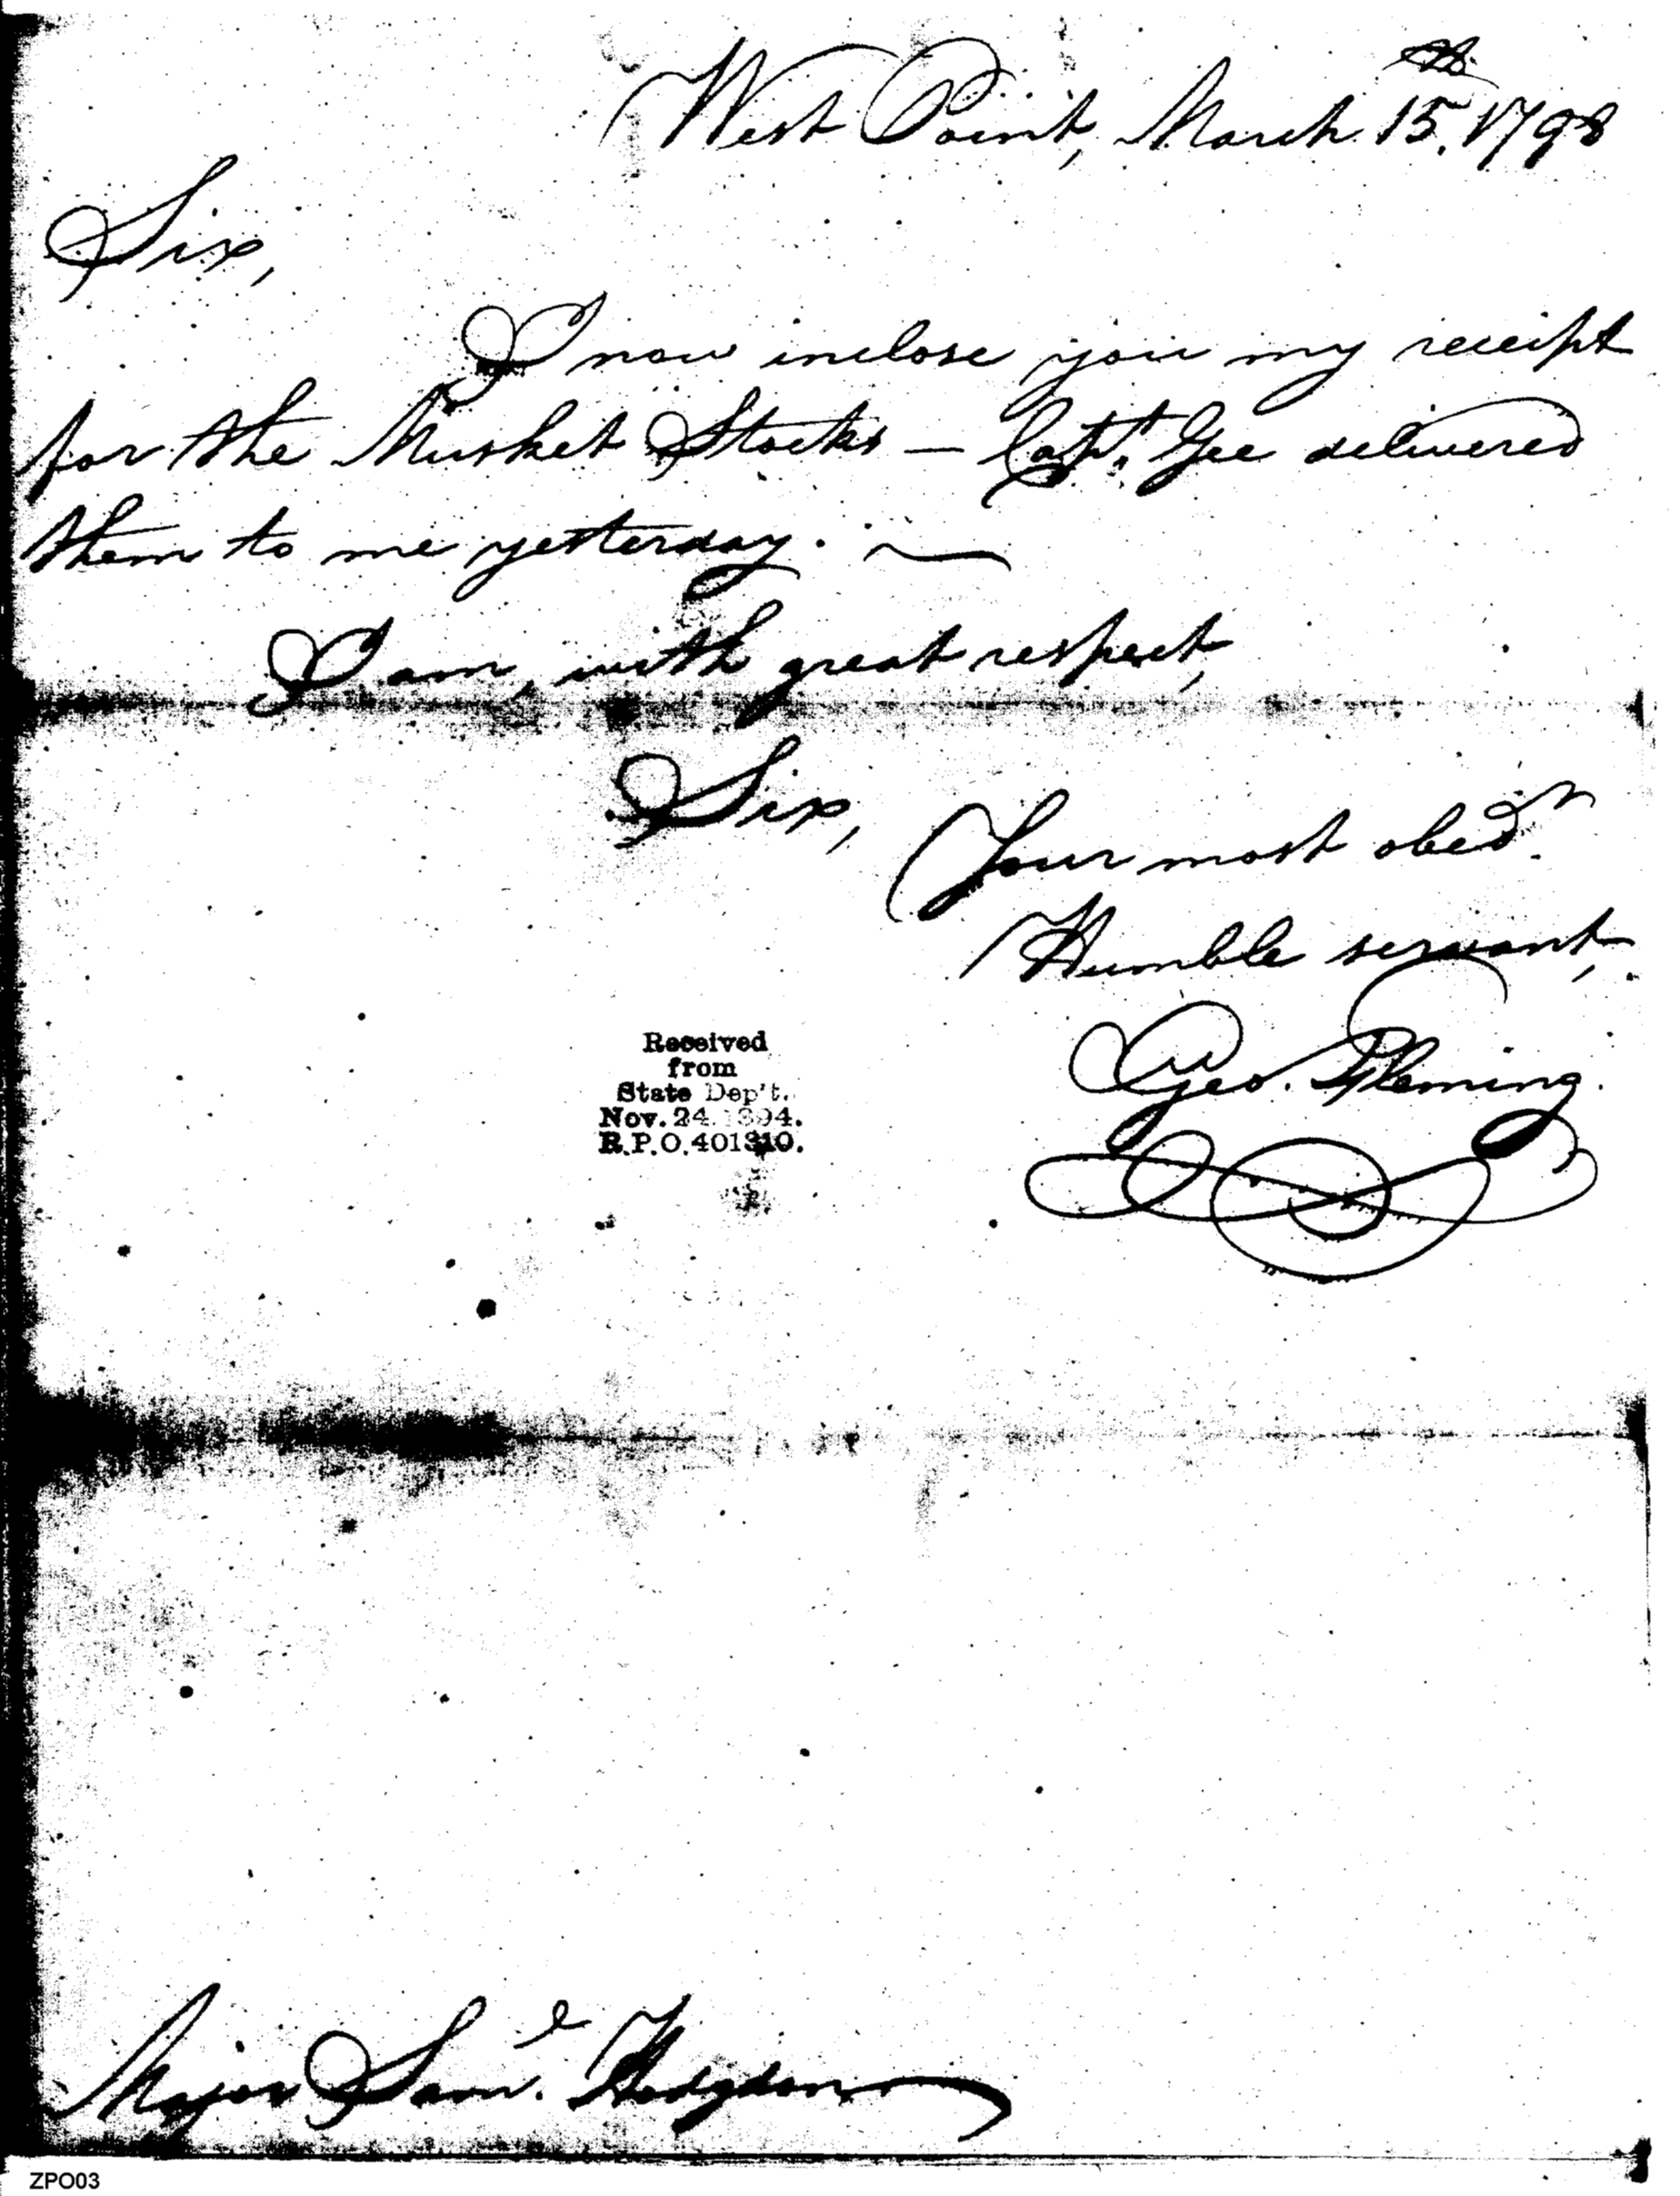 West Point, March 15th. 1798
Sir,
I now inclose you my receipt
for the Musket Stocks — Capt. Gee delivered
them to me yesterday. —
I am, with great respect,
Sir,
Your most obedt.
Humble servant,
Geo. Fleming.
Received
from
State Dep't.
Nov. 24. 1894.
R.P.O. 401310.
Major Saml. Hodgdon
ZPO03